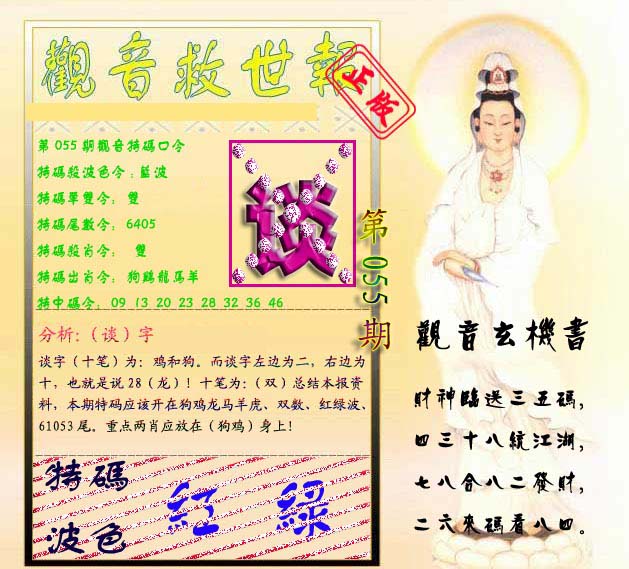 觀音救世報
正版
第055期觀音特碼口令
特碼殺波色令:藍波
特碼單雙令: 雙
特碼尾數令: 6405
特碼殺肖令: 雙
特碼出肖令: 狗鷄龍馬羊
特中碼令: 09 13 20 23 28 32 36 46
谈
第055期
分析:（谈）字
谈字（十笔）为: 鸡和狗。而谈字左边为二, 右边为
十, 也就是说28（龙）! 十笔为:（双）总结本报资
料, 本期特码应该开在狗鸡龙马羊虎、双数、红绿波、
61053尾。重点两肖应放在（狗鸡）身上!
特碼
波色
紅 綠
觀音玄機書
財神臨送三五碼,
四三十八繞江湖,
七八合八二發財,
二六來碼看八四。